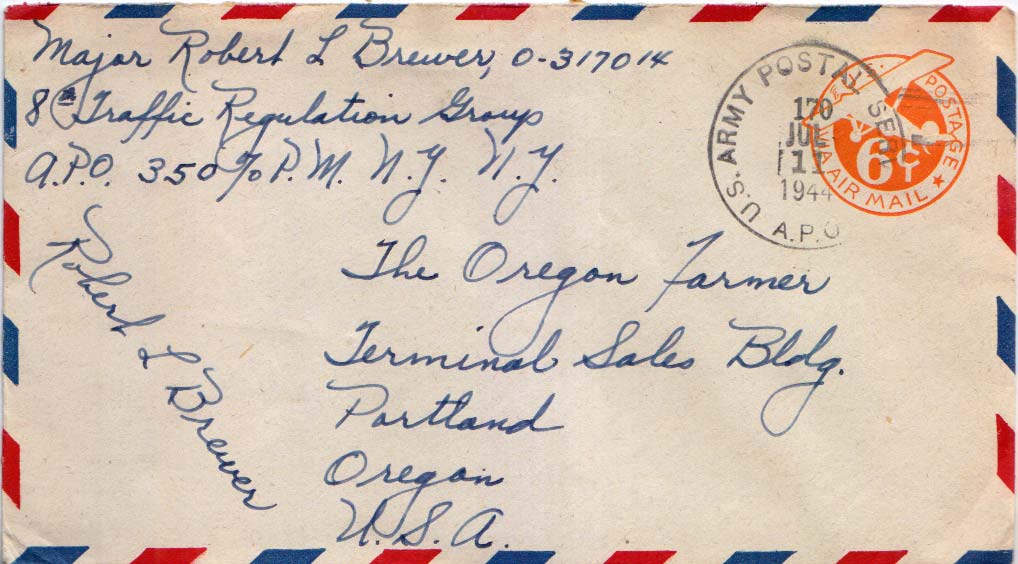 Major Robert L Brewer, O-317014
8th Traffic Regulation Group
A.P.O. 350 % P.M. N.Y. N.Y.
U.S. ARMY POSTAL SERV.
170
JUL
11
1944
A.P.O
POSTAGE
6¢
VIA AIR MAIL
The Oregon Farmer
Terminal Sales Bldg.
Portland
Oregon
U.S.A.
Robert L Brewer